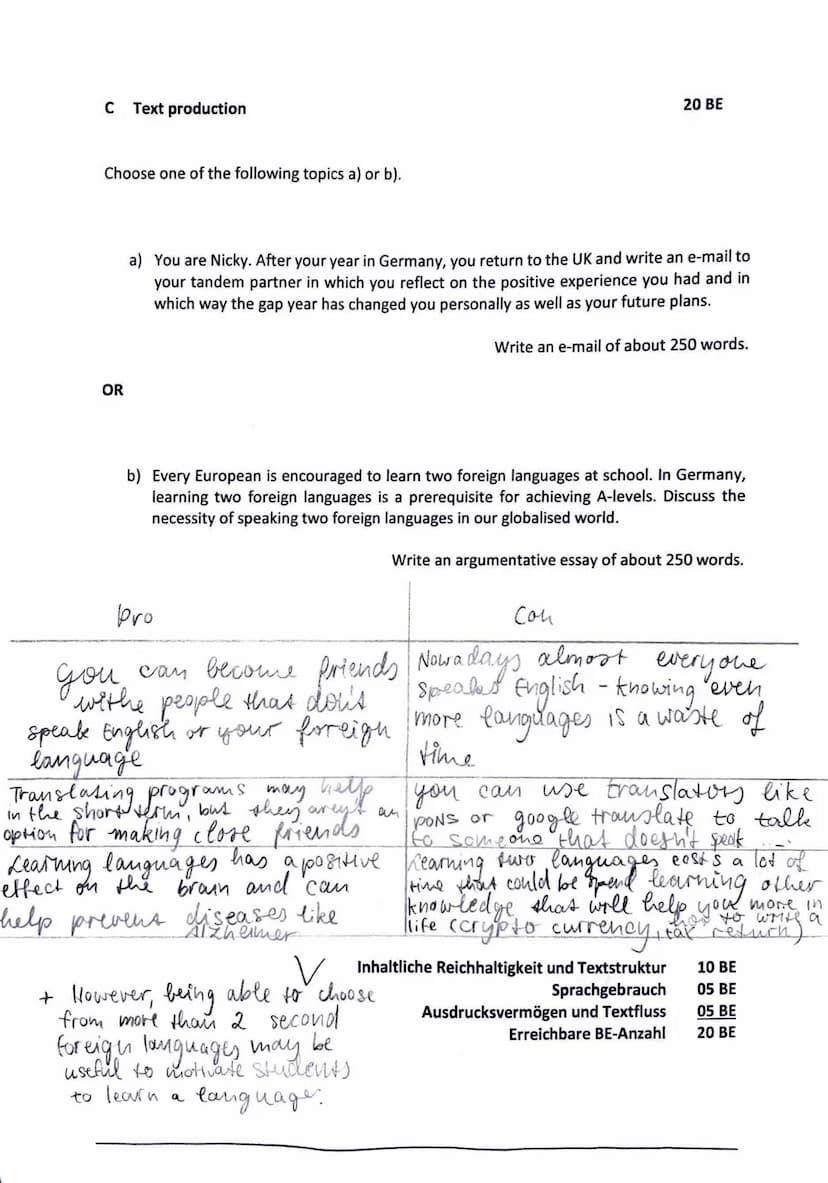 C Text production 20 BE
Choose one of the following topics a) or b).
a) You are Nicky. After your year in Germany, you return to the UK and write an e-mail to
your tandem partner in which you reflect on the positive experience you had and in
which way the gap year has changed you personally as well as your future plans.
Write an e-mail of about 250 words.
OR
b) Every European is encouraged to learn two foreign languages at school. In Germany,
learning two foreign languages is a prerequisite for achieving A-levels. Discuss the
necessity of speaking two foreign languages in our globalised world.
Write an argumentative essay of about 250 words.
Pro
you can become friends
withe people that don't
speak English or your foreign
language
Con
Nowadays almost everyone
speakes English - knowing even
more languages is a waste of
time
Translating programs may help
in the short term, but they aren't an
option for making close friends
you can use translators like
pons or google translate to talk
to someone that doesn't speak ....
Learning languages has a positive
effect on the brain and can
help prevent diseases like
Alzheimer
Learning two languages costs a lot of
time that could be spend learning other
knowledge that will help you more in
life (crypto currency, how to write a
tax return)
Inhaltliche Reichhaltigkeit und Textstruktur 10 BE
Sprachgebrauch 05 BE
Ausdrucksvermögen und Textfluss 05 BE
Erreichbare BE-Anzahl 20 BE
+ However, being able to choose
from more than 2 second
foreign languages may be
useful to motivate students
to learn a language.